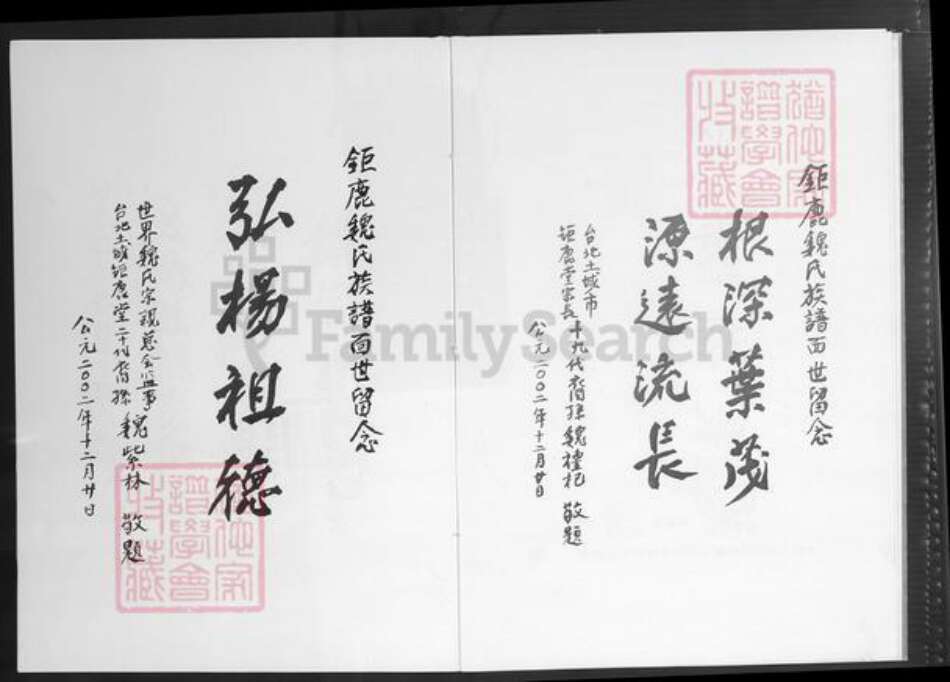 鉅鹿魏氏族譜面世留念
根深葉茂
源遠流長
台北土城市
鉅鹿堂宗長十九代裔孫魏禮杞 敬題
公元二00二年十二月廿日
猶他家
譜學會
收藏
鉅鹿魏氏族譜面世留念
弘楊祖德
世界魏氏宗親總會監事魏紫林 敬題
台北土城鉅鹿堂二十代裔孫
公元二00二年十二月廿日
猶他家
譜學會
收藏
FamilySearch